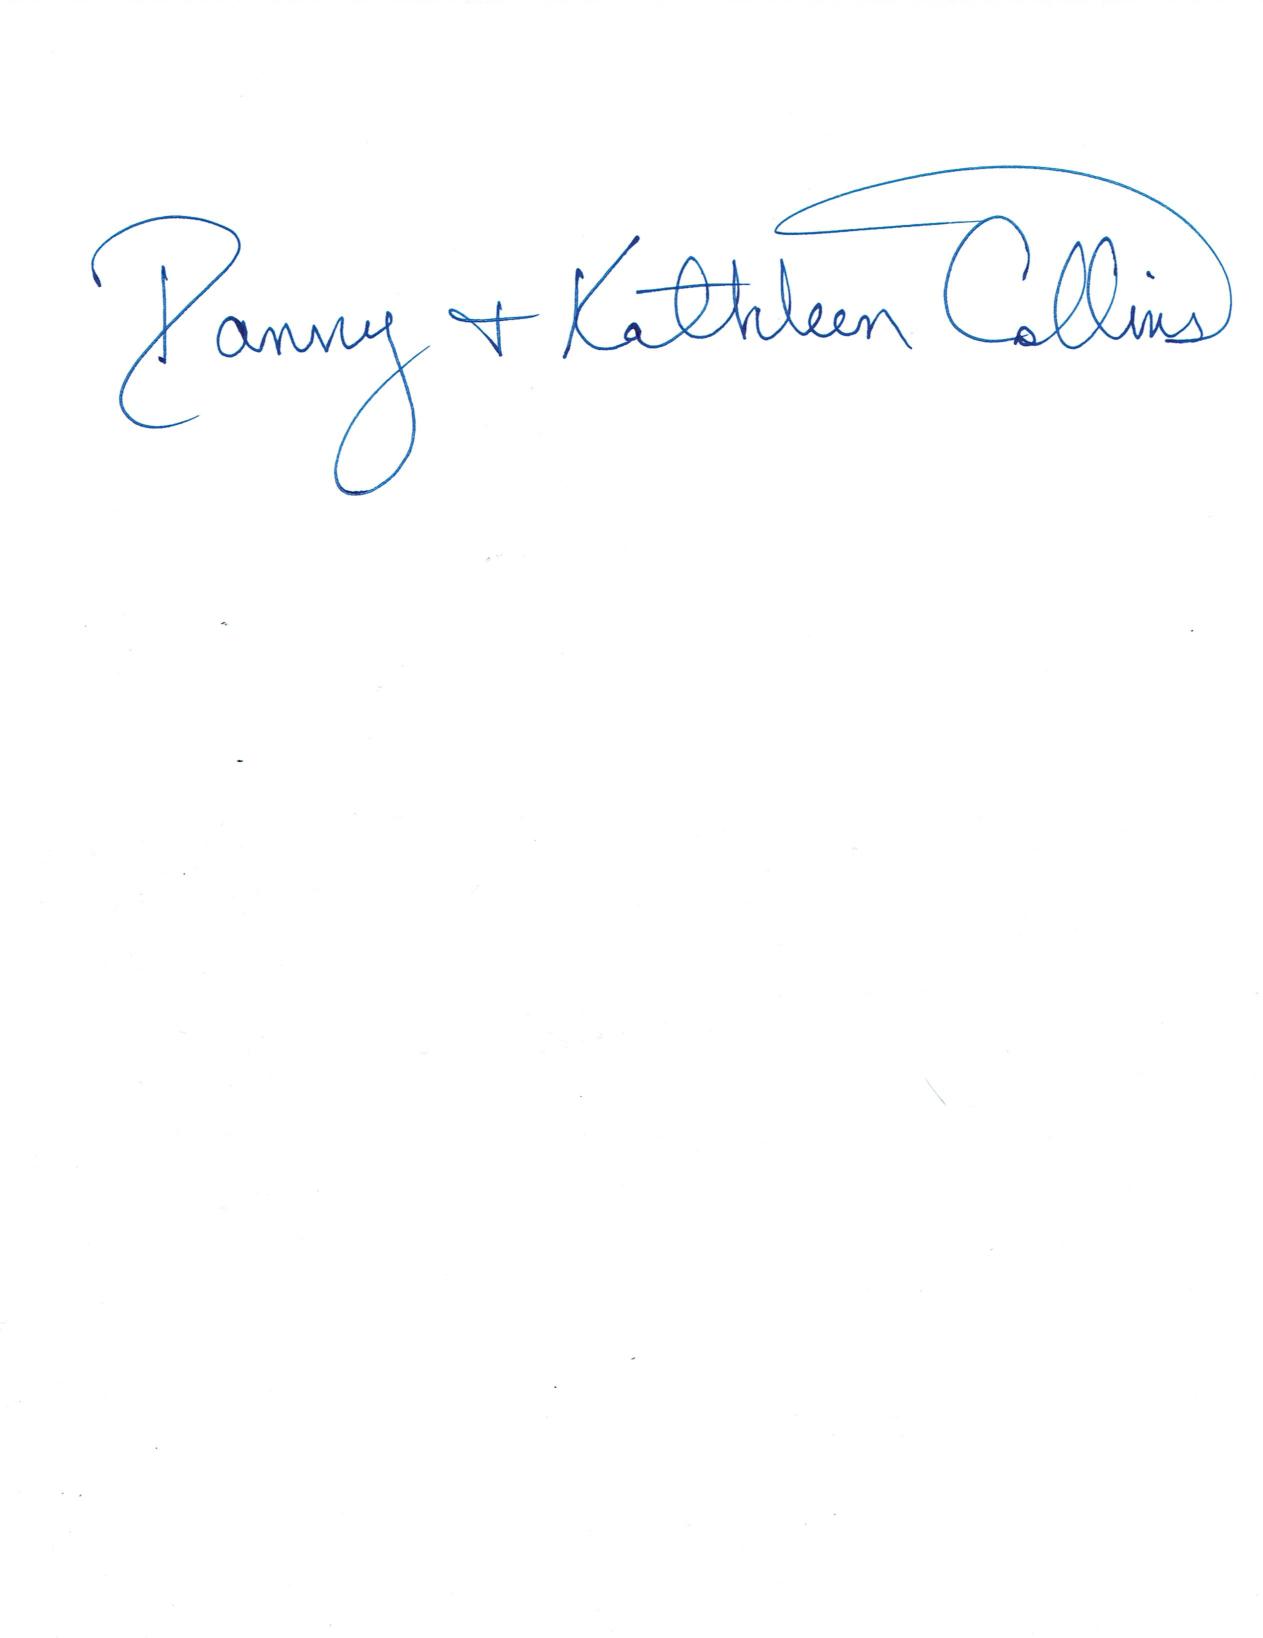 Danny + Kathleen Collins